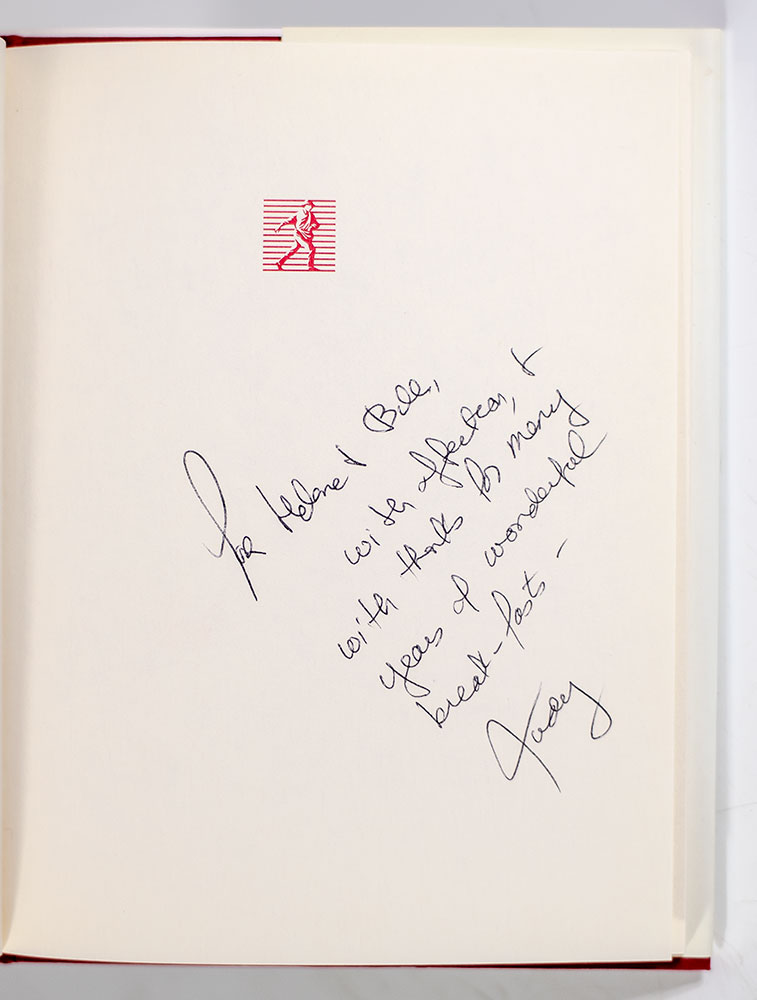 For Helene & Bill,
with affection, &
with thanks for many
years of wonderful
break-fasts –
Judy